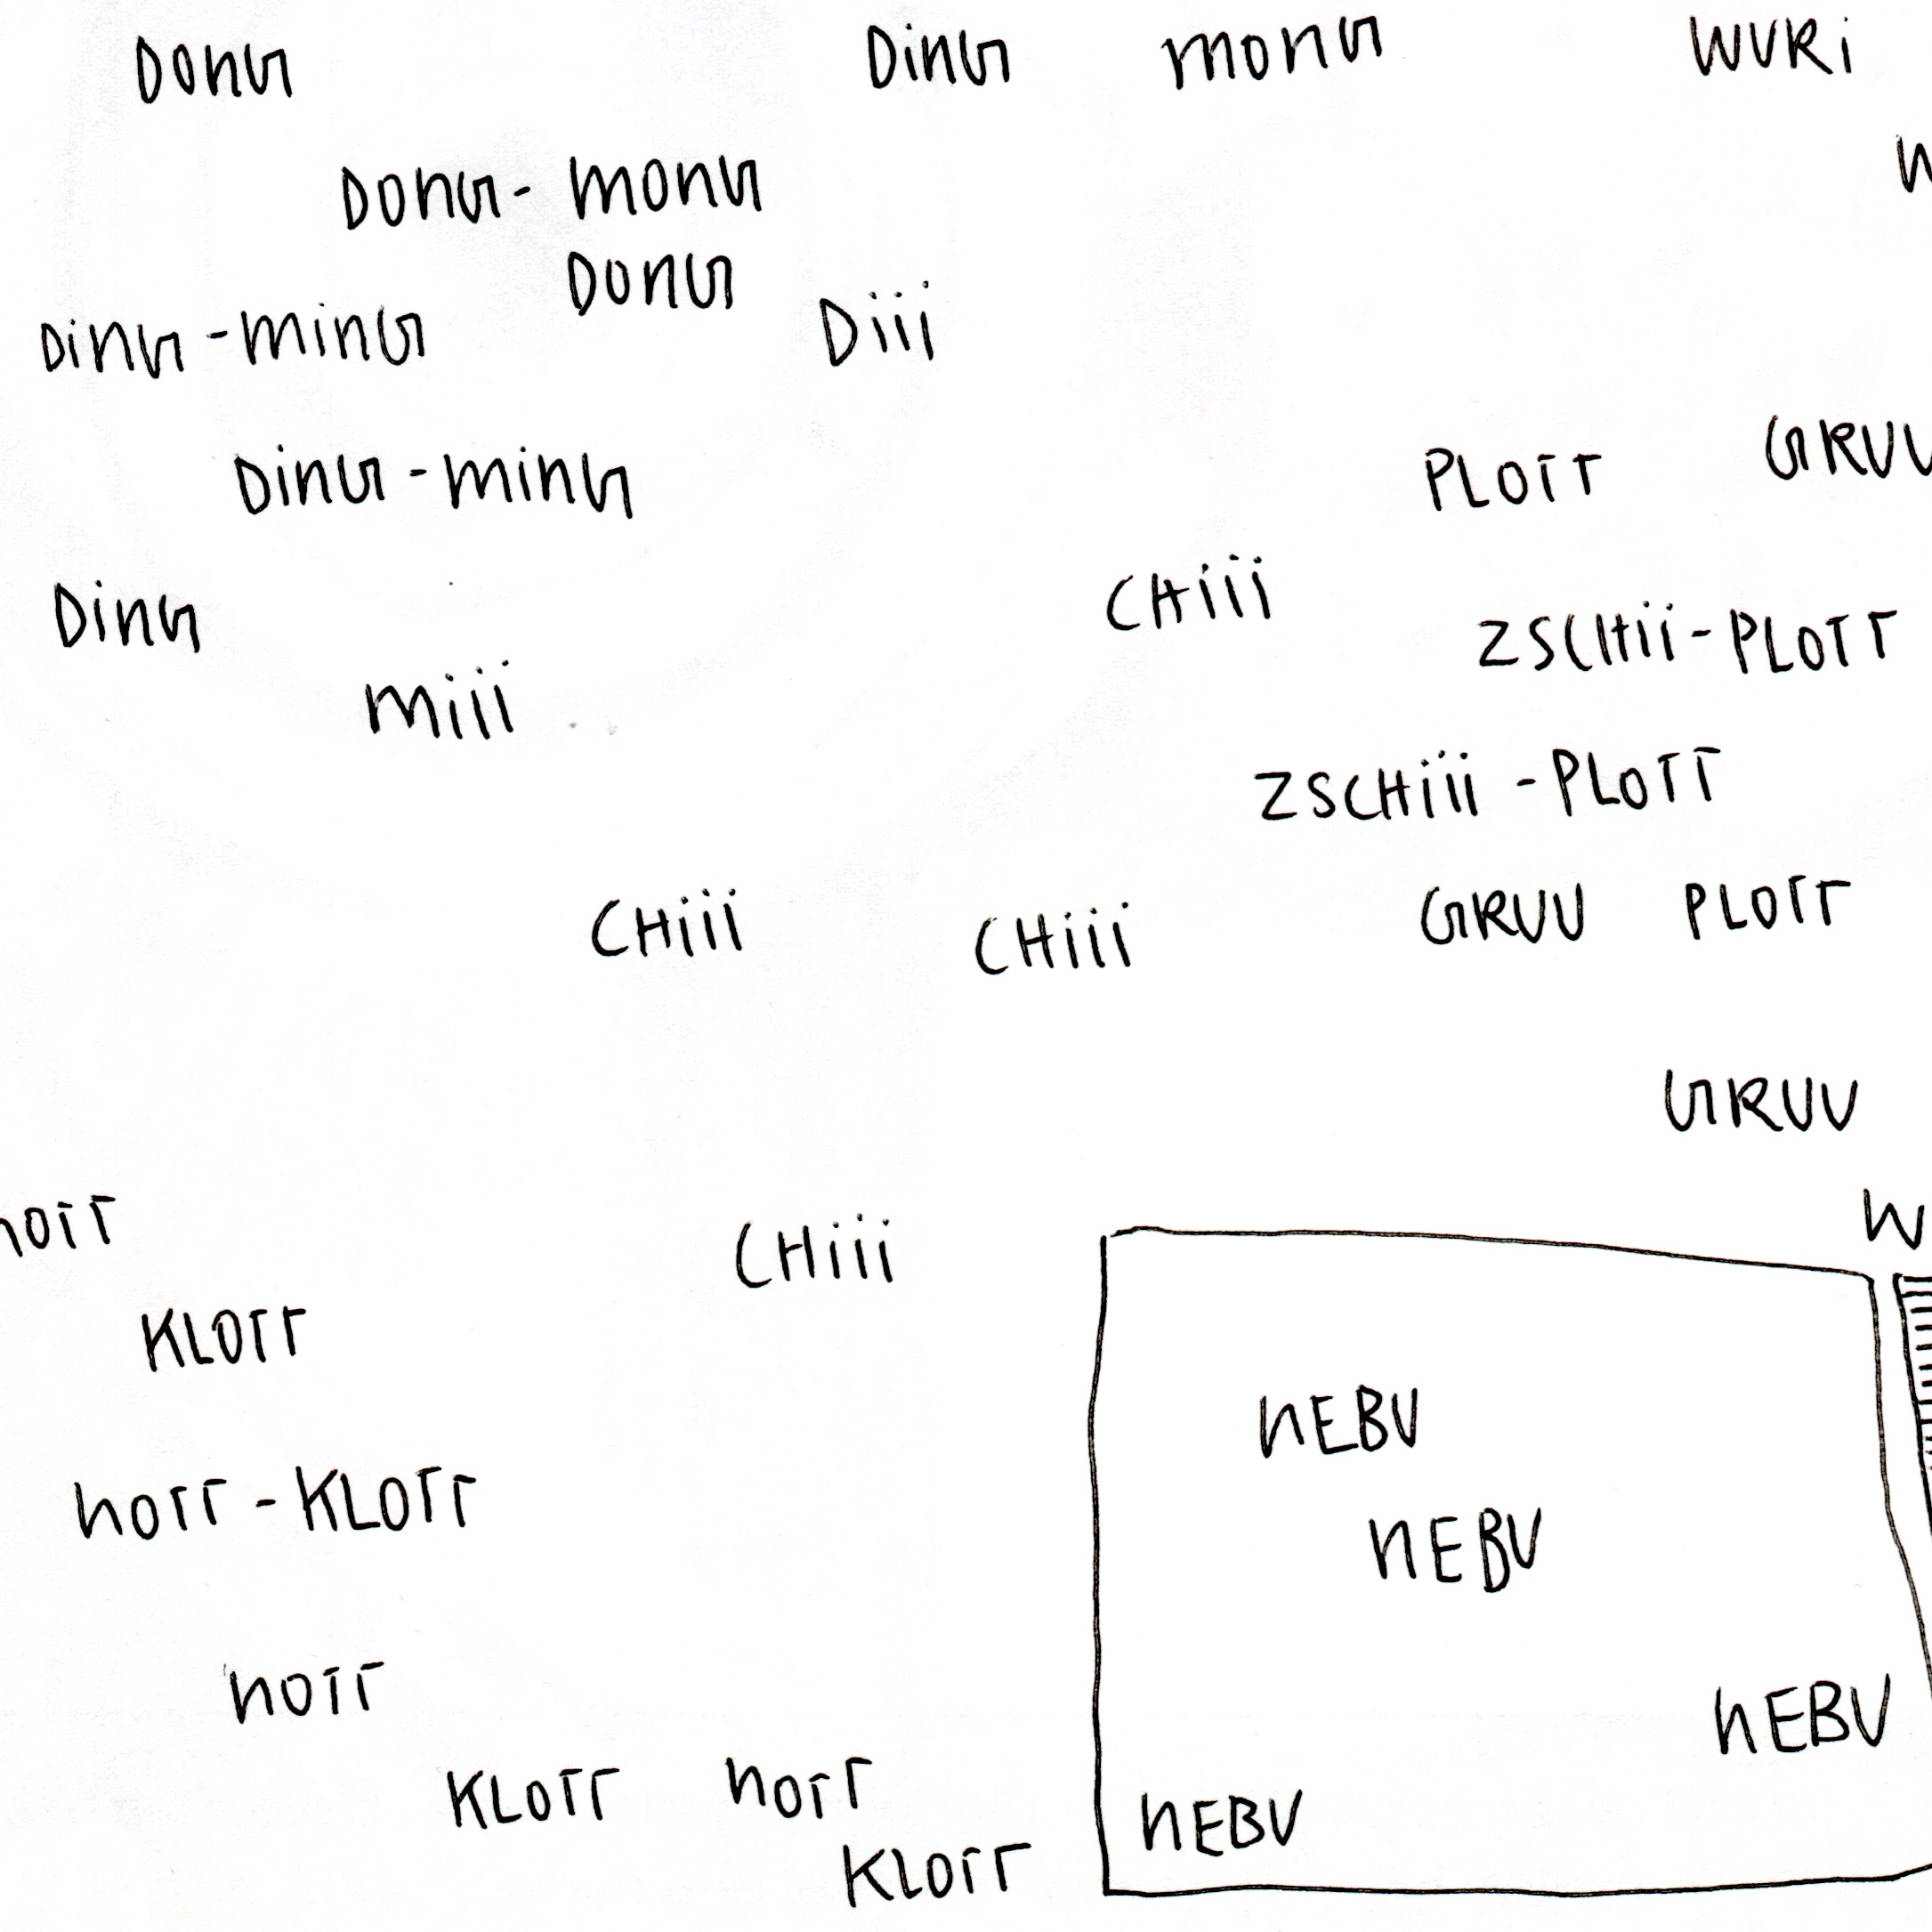 DONG DING MONG WUKI
DONG- MONG
DONG
DING-MING DIII
DING-MING PLOTT GRUU
CHIII
DING ZSCHII-PLOTT
MIII
ZSCHIII-PLOTT
CHIII CHIII GRUU PLOTT
GRUU
NOTT CHIII
KLOTT
NEBU
NOTT-KLOTT
NEBU
NOTT
NEBU
KLOTT NOTT
NEBU
KLOTT